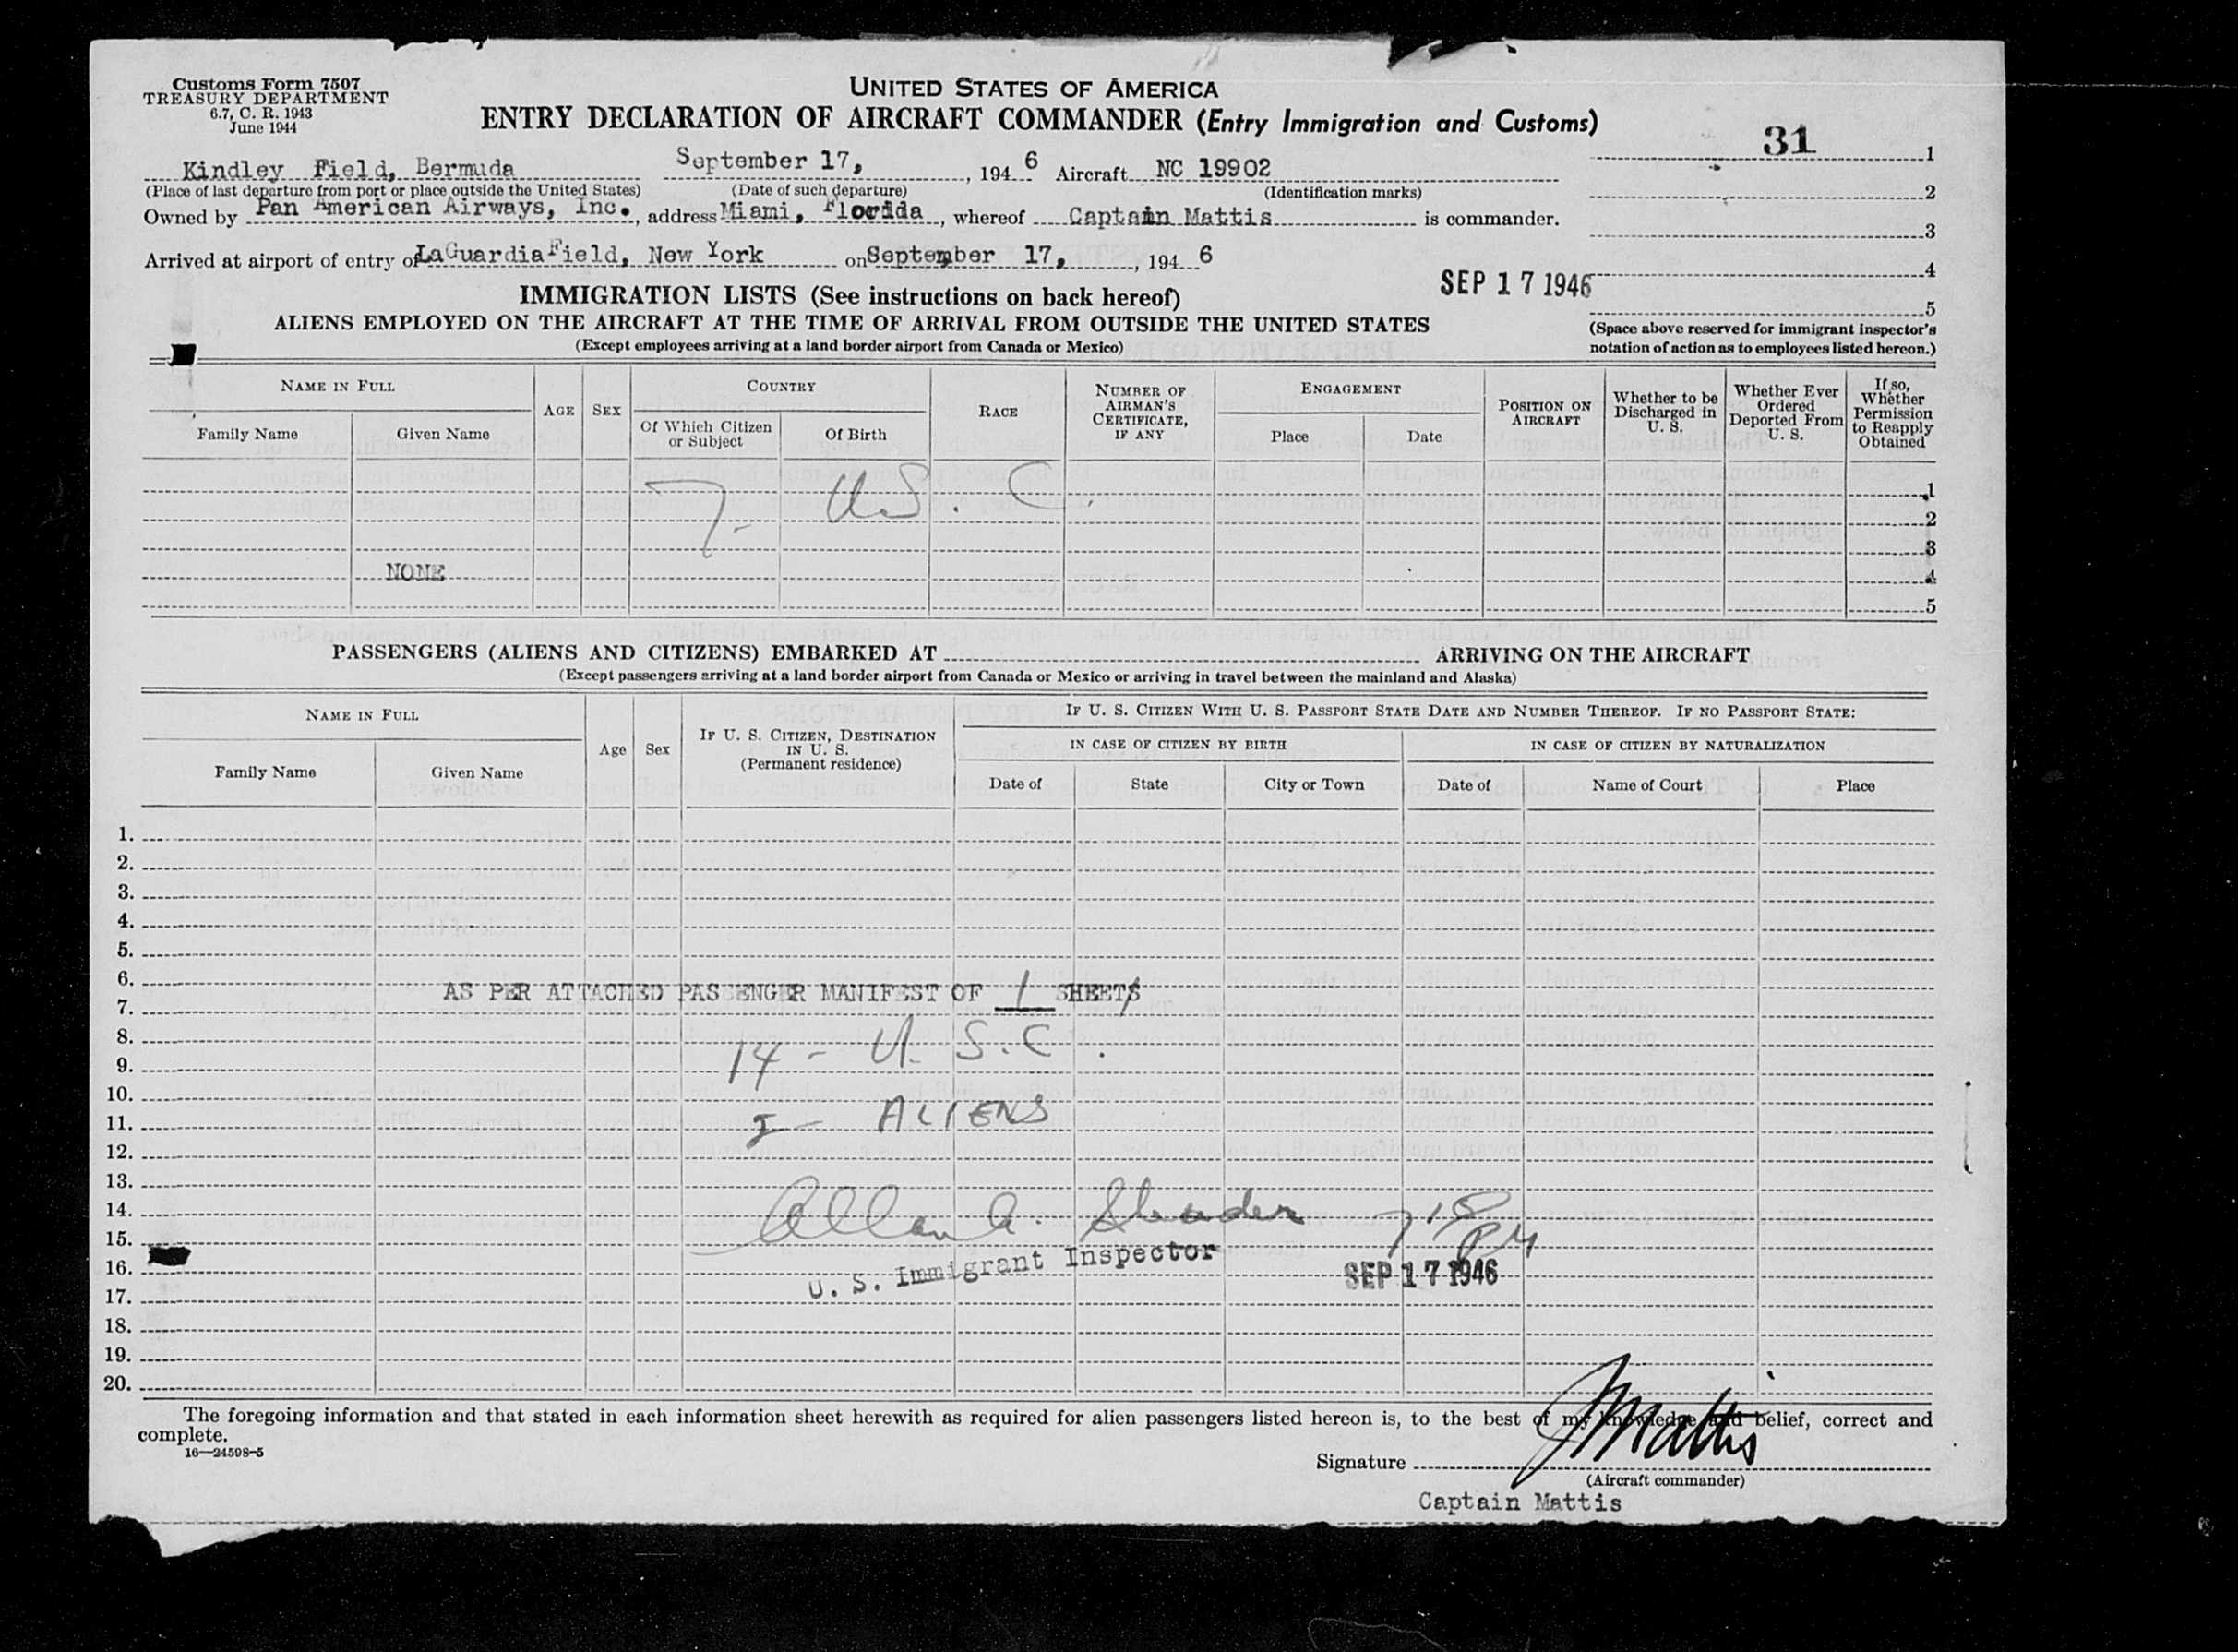 Customs Form 7507
TREASURY DEPARTMENT
6.7, C. R. 1943
June 1944
UNITED STATES OF AMERICA
ENTRY DECLARATION OF AIRCRAFT COMMANDER (Entry Immigration and Customs)
31
1
2
3
4
5
Kindley Field, Bermuda September 17, , 1946 Aircraft NC 19902
(Place of last departure from port or place outside the United States) (Date of such departure) (Identification marks)
Owned by Pan American Airways, Inc. , address Miami, Florida , whereof Captain Mattis is commander.
Arrived at airport of entry of LaGuardia Field, New York on September 17, , 1946
SEP 17 1946
IMMIGRATION LISTS (See instructions on back hereof)
ALIENS EMPLOYED ON THE AIRCRAFT AT THE TIME OF ARRIVAL FROM OUTSIDE THE UNITED STATES
(Except employees arriving at a land border airport from Canada or Mexico)
(Space above reserved for immigrant inspector's
notation of action as to employees listed hereon.)
NAME IN FULL
Family Name
Given Name
AGE
SEX
COUNTRY
Of Which Citizen
or Subject
Of Birth
RACE
NUMBER OF
AIRMAN'S
CERTIFICATE,
IF ANY
ENGAGEMENT
Place
Date
POSITION ON
AIRCRAFT
Whether to be
Discharged in
U. S.
Whether Ever
Ordered
Deported From
U. S.
If so,
Whether
Permission
to Reapply
Obtained
7- U.S.C.
1
2
3
NONE 4
5
PASSENGERS (ALIENS AND CITIZENS) EMBARKED AT ARRIVING ON THE AIRCRAFT
(Except passengers arriving at a land border airport from Canada or Mexico or arriving in travel between the mainland and Alaska)
NAME IN FULL
Family Name
Given Name
Age
Sex
IF U. S. CITIZEN, DESTINATION
IN U. S.
(Permanent residence)
IF U. S. CITIZEN WITH U. S. PASSPORT STATE DATE AND NUMBER THEREOF. IF NO PASSPORT STATE:
IN CASE OF CITIZEN BY BIRTH
Date of
State
City or Town
IN CASE OF CITIZEN BY NATURALIZATION
Date of
Name of Court
Place
1.
2.
3.
4.
5.
6.
AS PER ATTACHED PASSENGER MANIFEST OF 1 SHEETS
7.
8.
14 - U.S.C.
9.
10.
11. 2 - ALIENS
12.
13.
14.
Allan A.
15.
U. S. Immigrant Inspector
16.
SEP 17 1946
17.
18.
19.
20.
The foregoing information and that stated in each information sheet herewith as required for alien passengers listed hereon is, to the best of my knowledge and belief, correct and
complete.
16—24598-5
Signature JMattis
(Aircraft commander)
Captain Mattis